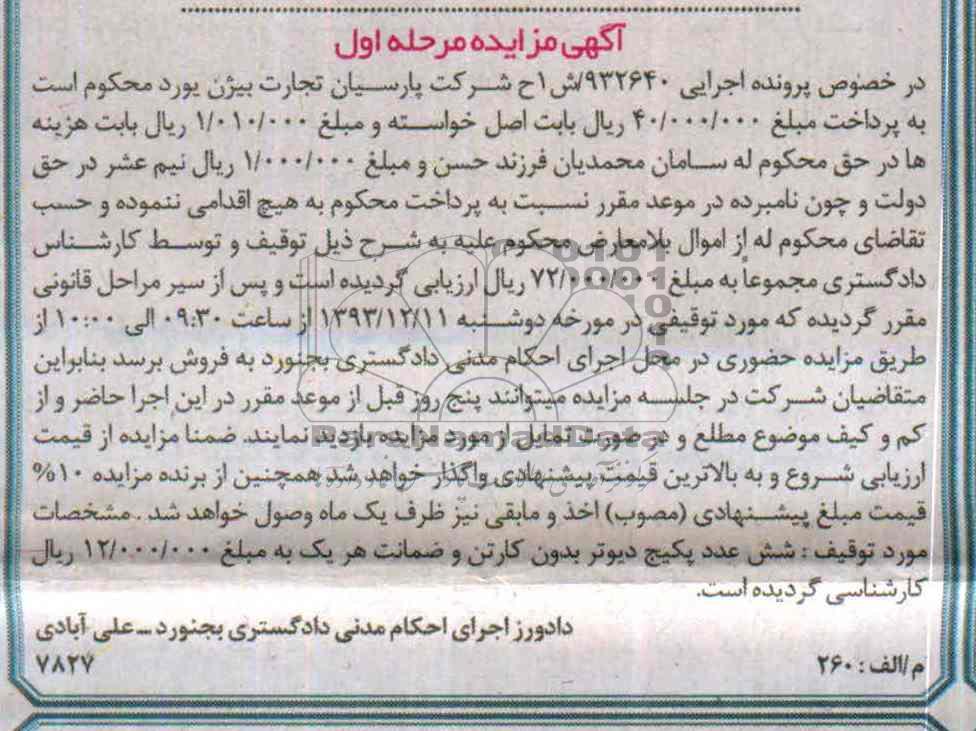 آگهی مزایده مرحله اول
در خصوص پرونده اجرایی ۹۳۲۶۴۰/ش۱ح شرکت پارسیان تجارت بیژن یورد محکوم است
به پرداخت مبلغ ۴۰/۰۰۰/۰۰۰ ریال بابت اصل خواسته و مبلغ ۱/۰۱۰/۰۰۰ ریال بابت هزینه
ها در حق محکوم له سامان محمدیان فرزند حسن و مبلغ ۱/۰۰۰/۰۰۰ ریال نیم عشر در حق
دولت و چون نامبرده در موعد مقرر نسبت به پرداخت محکوم به هیچ اقدامی ننموده و حسب
تقاضای محکوم له از اموال بلامعارض محکوم علیه به شرح ذیل توقیف و توسط کارشناس
دادگستری مجموعاً به مبلغ ۷۲/۰۰۰/۰۰۰ ریال ارزیابی گردیده است و پس از سیر مراحل قانونی
مقرر گردیده که مورد توقیفی در مورخه دوشنبه ۱۳۹۳/۱۲/۱۱ از ساعت ۰۹:۳۰ الی ۱۰:۰۰ از
طریق مزایده حضوری در محل اجرای احکام مدنی دادگستری بجنورد به فروش برسد بنابراین
متقاضیان شرکت در جلسه مزایده میتوانند پنج روز قبل از موعد مقرر در این اجرا حاضر و از
کم و کیف موضوع مطلع و در صورت تمایل از مورد مزایده بازدید نمایند. ضمنا مزایده از قیمت
ارزیابی شروع و به بالاترین قیمت پیشنهادی واگذار خواهد شد همچنین از برنده مزایده ۱۰%
قیمت مبلغ پیشنهادی (مصوب) اخذ و مابقی نیز ظرف یک ماه وصول خواهد شد . مشخصات
مورد توقیف : شش عدد پکیج دیوتر بدون کارتن و ضمانت هر یک به مبلغ ۱۲/۰۰۰/۰۰۰ ریال
کارشناسی گردیده است.
دادورز اجرای احکام مدنی دادگستری بجنورد ـ علی آبادی
م/الف : ۲۶۰
۷۸۲۷
ParsNamadData